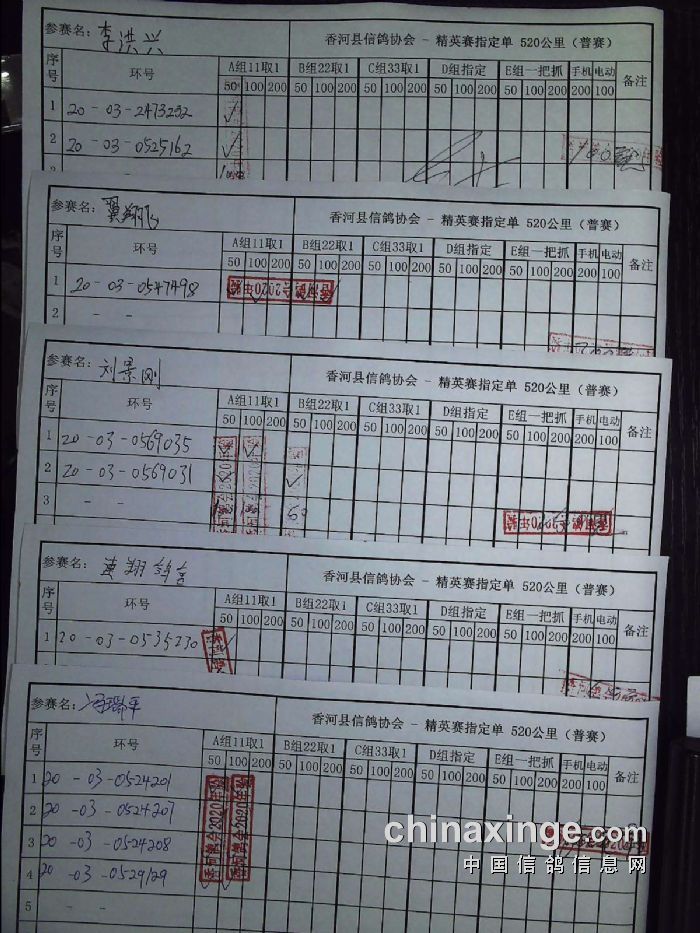 参赛名: 李洪兴 香河县信鸽协会 - 精英赛指定单 520公里 (普赛)
序号 环号 A组11取1 B组22取1 C组33取1 D组指定 E组一把抓 手机 电动 备注
50 100 200 50 100 200 50 100 200 50 100 200 50 100 200 200 100
1 20-03-2473252
2 20-03-0525162
参赛名: 翼翔 香河县信鸽协会 - 精英赛指定单 520公里 (普赛)
序号 环号 A组11取1 B组22取1 C组33取1 D组指定 E组一把抓 手机 电动 备注
50 100 200 50 100 200 50 100 200 50 100 200 50 100 200 200 100
1 20-03-0547498
2 - -
参赛名: 刘景刚 香河县信鸽协会 - 精英赛指定单 520公里 (普赛)
序号 环号 A组11取1 B组22取1 C组33取1 D组指定 E组一把抓 手机 电动 备注
50 100 200 50 100 200 50 100 200 50 100 200 50 100 200 200 100
1 20-03-0569035
2 20-03-0569031
3 - -
参赛名: 翔鸽舍 香河县信鸽协会 - 精英赛指定单 520公里 (普赛)
序号 环号 A组11取1 B组22取1 C组33取1 D组指定 E组一把抓 手机 电动 备注
50 100 200 50 100 200 50 100 200 50 100 200 50 100 200 200 100
1 20-03-0535230
参赛名: 冯瑞平 香河县信鸽协会 - 精英赛指定单 520公里 (普赛)
序号 环号 A组11取1 B组22取1 C组33取1 D组指定 E组一把抓 手机 电动 备注
50 100 200 50 100 200 50 100 200 50 100 200 50 100 200 200 100
1 20-03-0524201
2 20-03-0524207
3 20-03-0524208
4 20-03-0529129
5 - -
chinaxinge.com
中国信鸽信息网